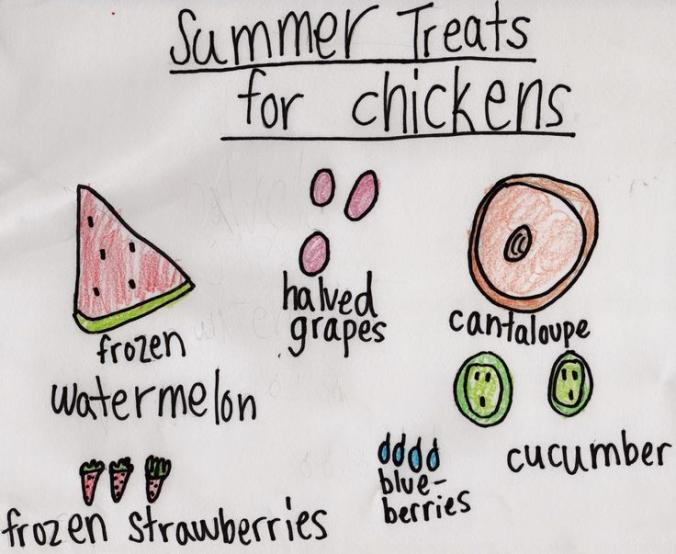 Summer Treats
for chickens
frozen
watermelon
halved
grapes
cantaloupe
cucumber
frozen strawberries
blue-
berries